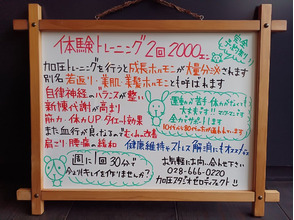 体験トレーニング2回2000エン
加圧トレーニングを行うと成長ホルモンが大量分泌されます
別名 若返り・美肌・美髪ホルモンとも呼ばれます
自律神経のバランスが整い
新陳代謝が高まり
筋力・体力UP ダイエット効果
また血行が良くなるので むくみ改善
肩こり・腰痛の緩和
運動が苦手 体力がなくても
大丈夫です! マンツーマンで
全力サポートします
10代から80代の方が通われています
健康維持やストレス解消にもオススメ
週に1回30分で
今よりキレイを作りませんか?
お気軽にお問い合わせ下さい
028-666-0220
加圧スタジオセロディスクト!!